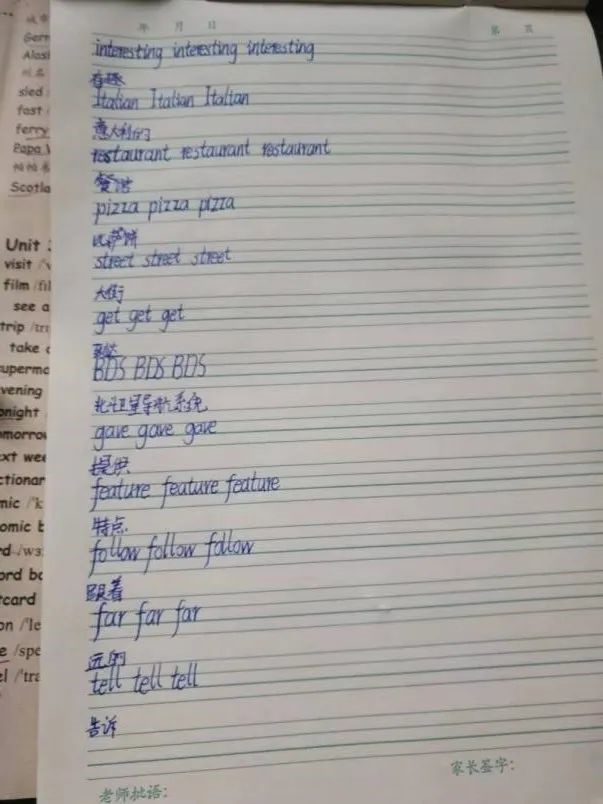 年 月 日 第 页
interesting interesting interesting
有趣
Italian Italian Italian
意大利的
restaurant restaurant restaurant
餐馆
pizza pizza pizza
比萨饼
street street street
大街
get get get
到达
BDS BDS BDS
北斗卫星导航系统
gave gave gave
提供
feature feature feature
特点
follow follow follow
跟着
far far far
远的
tell tell tell
告诉
家长签字:
老师批语:
城市
Alas
州名
sled
fast
ferry
Papa
Scotla
Unit
visit /'v
film /fil
see a
trip /tr
take
superma
evening
onight
omorrow
ext wee
ctionar
mic /'k
omic b
rd /wɜ:
ord bo
tcard
on /'le
e /spe
el /'tra